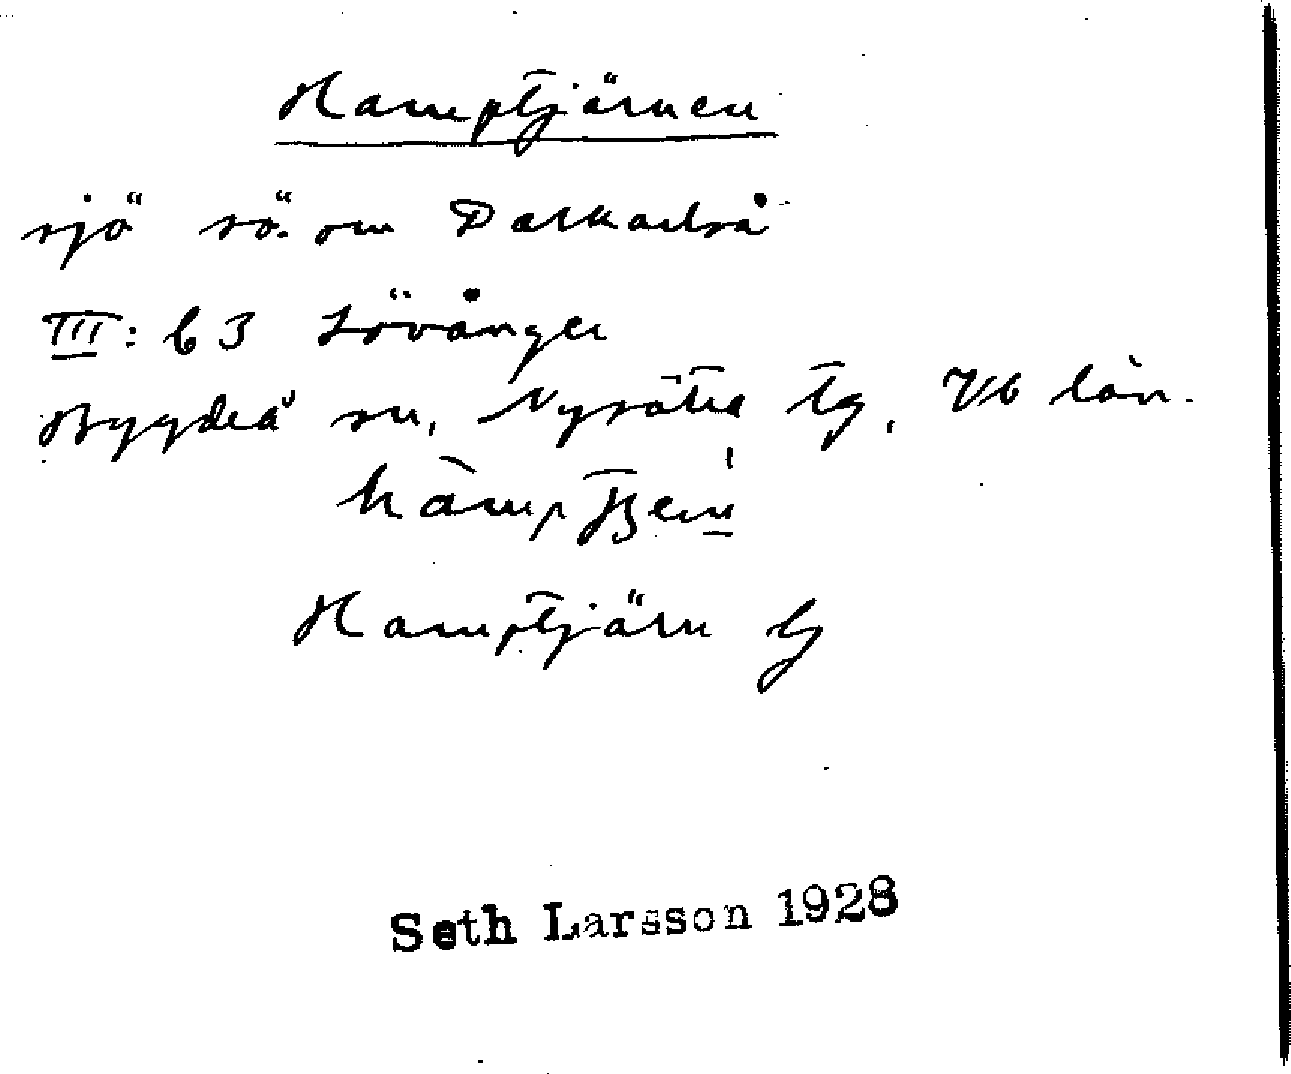 Hamptjärnen
sjö sö. om Dalkarlså
III: b 3 Lövånger
Bygdeå sn, Nysätra tg, Vb län.
Hamptjärn
Seth Larsson 1928